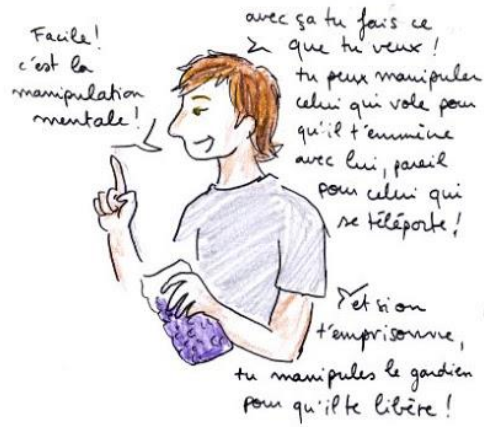 Facile!
c'est la
manipulation
mentale!
avec ça tu fais ce
que tu veux!
tu peux manipuler
celui qui vole pour
qu'il t'emmène
avec lui, pareil
pour celui qui
se téléporte!
et si on
t'emprisonne,
tu manipules le gardien
pour qu'il te libère!